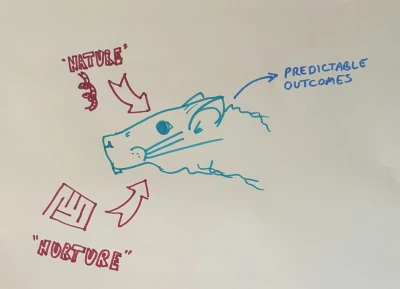 "NATURE"
PREDICTABLE
OUTCOMES
"NURTURE"